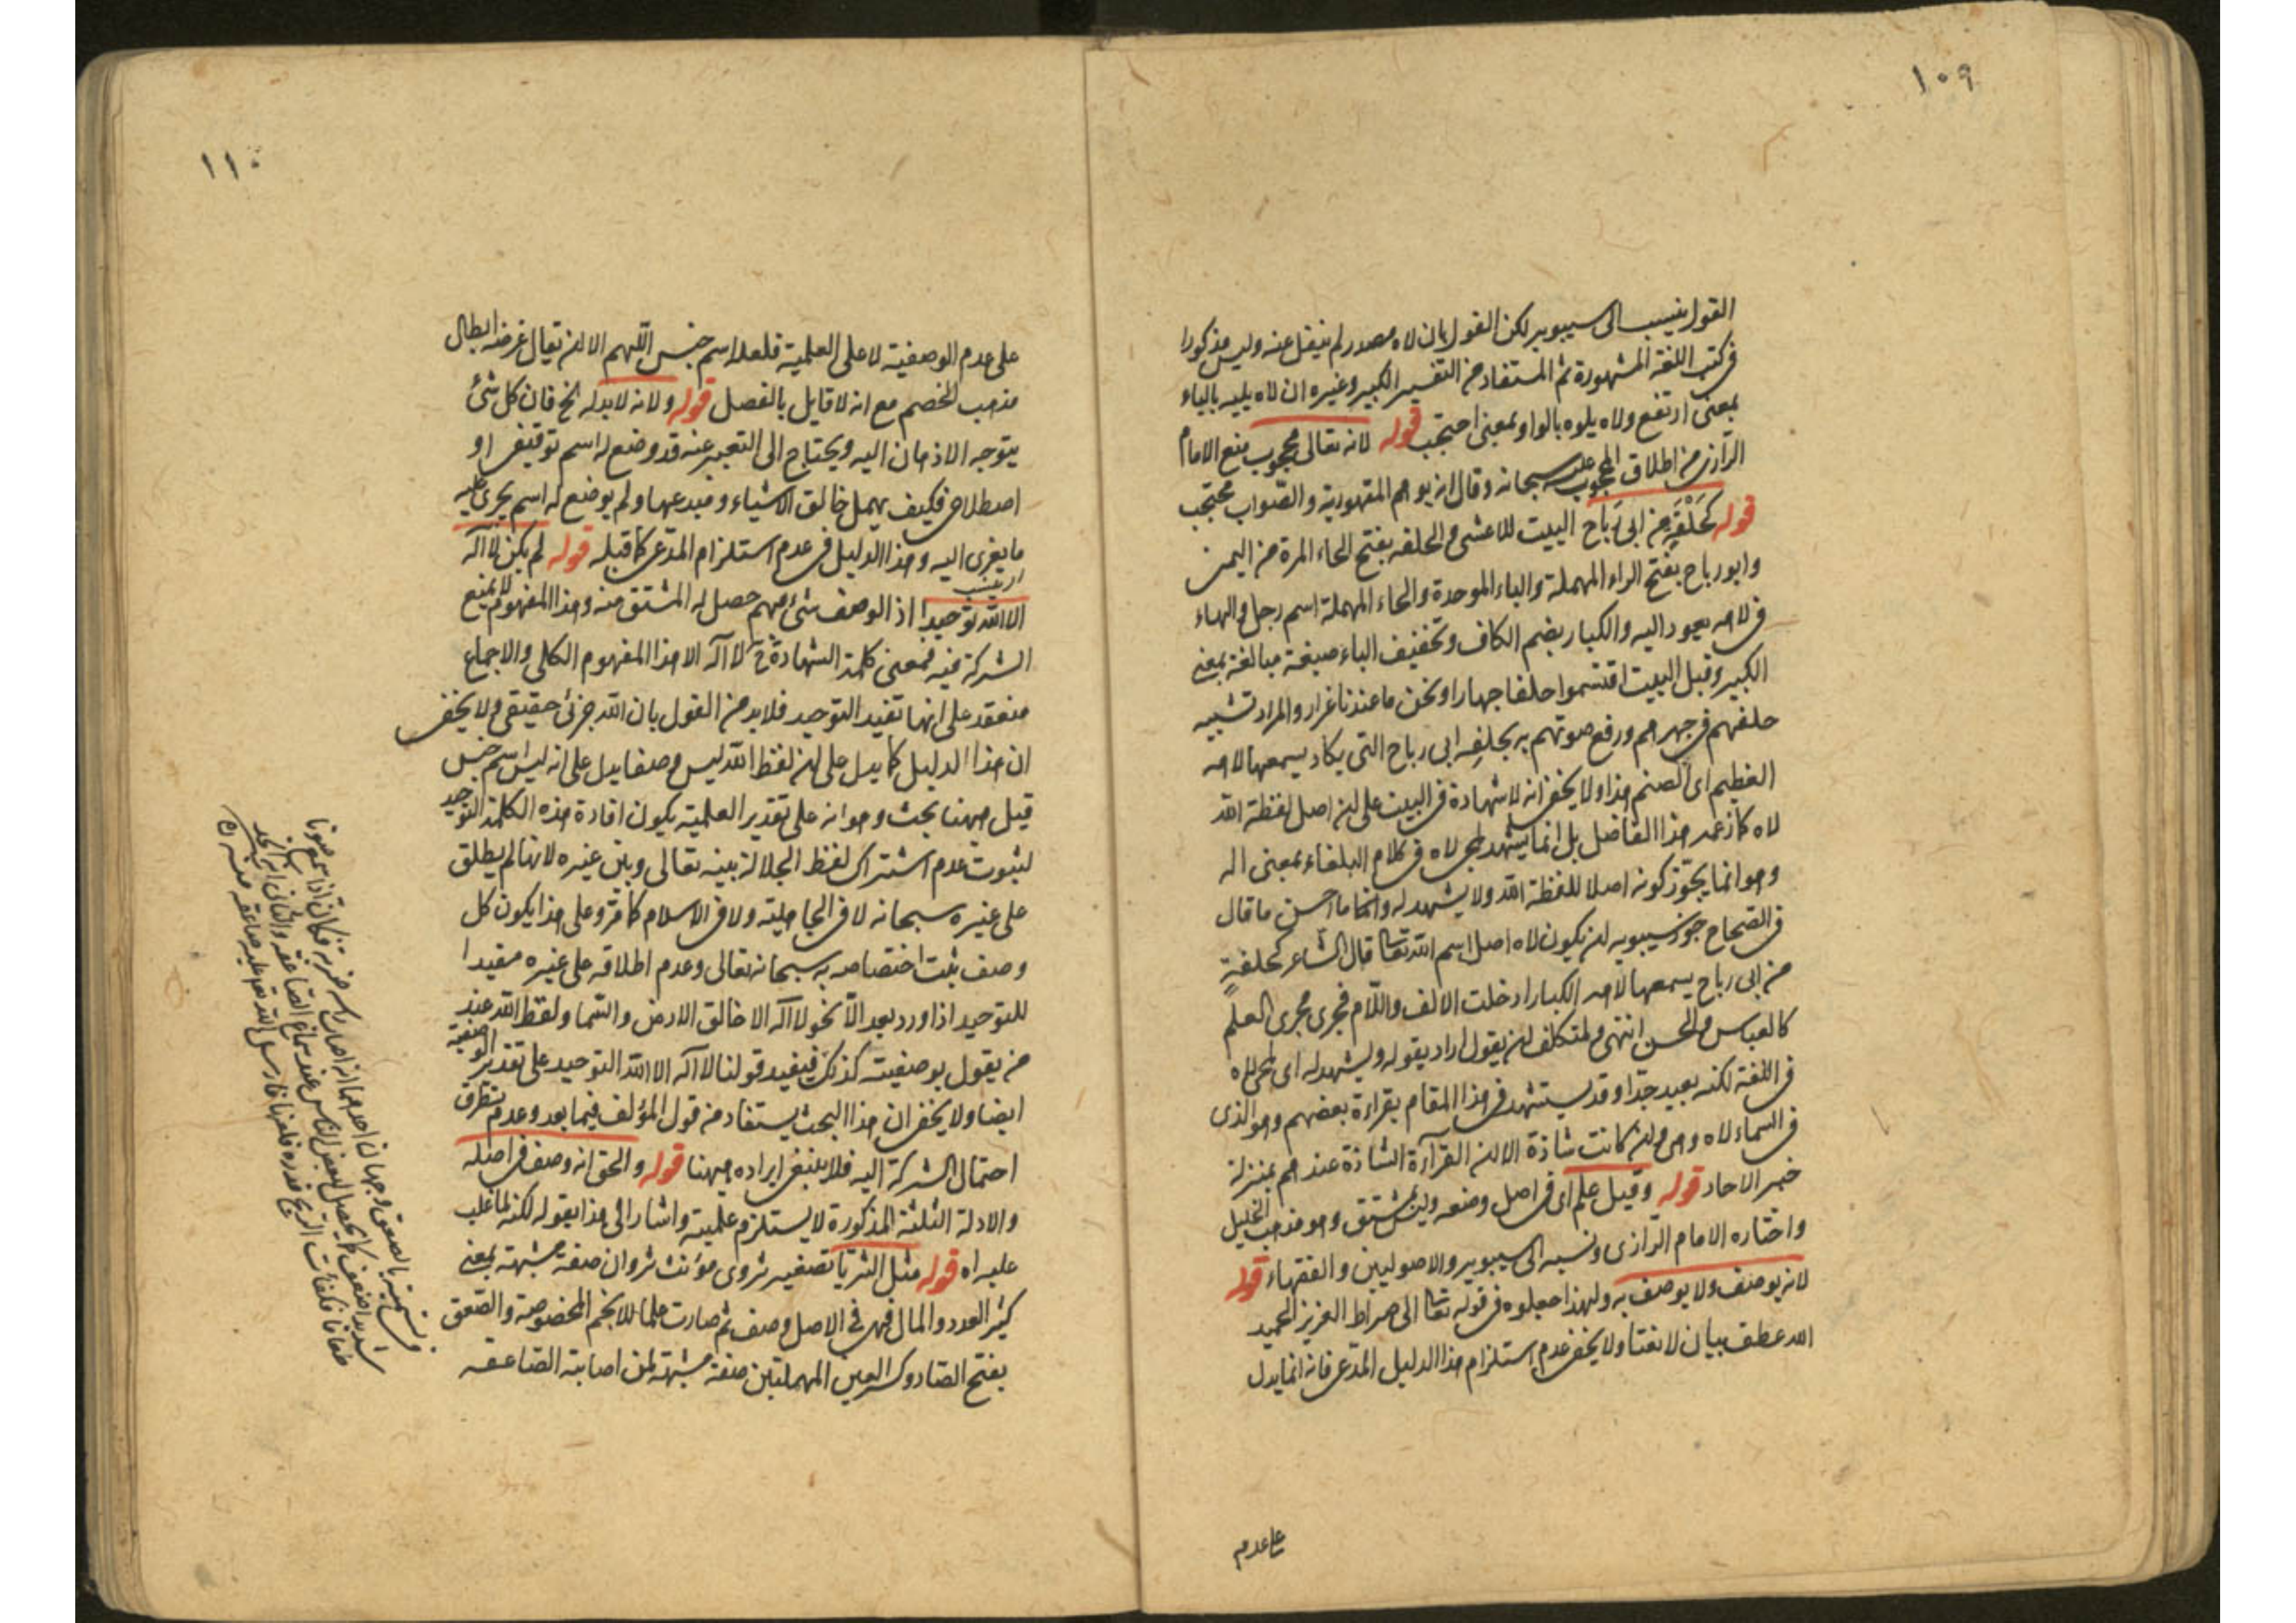 ١٠٩
القول ينسب الى سيبويه لكن القول بان لاه مصدر لم ينقل عنه وليس مذكورا
فى كتب اللغة المشهورة ثم المستفاد من التفسير الكبير وغيره ان لاه يليه بالياء
بمعنى ارتفع ولاه يلوه بالواو بمعنى احتجب قوله لانه تعالى محجوب منع الامام
الرازى من اطلاق المحجوب عليه سبحانه وقال انه يوهم المقهورية والصواب محتجب
قوله كَحَلْفَةٍ من ابى رَباح البيت للاعشى والحلفه بفتح الحاء المرة من اليمين
وابو رباح بفتح الراء المهملة والباء الموحدة والحاء المهملة اسم رجل والهاء
فى لاهه يعود اليه والكبار بضم الكاف وتخفيف الباء صيغة مبالغة بمعنى
الكبير وقبل البيت اقتسموا حلفا جهارا ونحن ما عندنا غرار والمراد تشبيه
حلفهم فى جهرهم ورفع صوتهم به بحلفه ابى رباح التى يكاد يسمعها لاهه
العظيم اى الصنم هذا ولا يخفى انه لا شهادة فى البيت على ان اصل لفظة الله
لاه كما زعمه هذا الفاضل بل انما يشهد لمجئ لاه فى كلام البلغاء بمعنى اله
وهو انما يجوّز كونه اصلا للفظة الله ولا يشهد له وانما ما احسن ما قال
فى الصحاح جوز سيبويه ان يكون لاه اصل اسم الله تعا قال الشاعر كحلفةٍ
من ابى رباح يسمعها لاهه الكبار ادخلت الالف واللام فجرى مجرى العلم
كالعباس والحسن انتهى ولمتكلف ان يقول اراد بقوله ويشهد له اى لمجئ لاه
فى اللغة لكنه بعيد جدا وقد يستشهد فى هذا المقام بقراءة بعضهم وهو الذى
فى السماء لاه وهى وان كانت شاذة الا ان القرآءة الشاذة عندهم بمنزلة
خبر الاحاد قوله وقيل علم اى فى اصل وضعه وليس بمشتق وهو مذهب الخليل
واختاره الامام الرازى ونسبه الى سيبويه والاصوليين والفقهاء قوله
لانه يوصف ولا يوصف به ولهذا جعلوه فى قوله تعا الى صراط العزيز الحميد
الله عطف بيان لا نعتا ولا يخفى عدم استلزام هذا الدليل المدّعى فانه انما يدل
على عدم
١١٠
على عدم الوصفية لا على العلمية فلعله اسم جنس اللّهم الا ان يقال غرضه ابطال
مذهب الخصم مع انه لا قايل بالفصل قوله ولانه لا بد له الخ فان كل شئ
يتوجه الاذهان اليه ويحتاج الى التعبير عنه قد وضع له اسم توقيفى او
اصطلاحى فكيف يهمل خالق الاشياء ومبدعها ولم يوضع له اسم يجرى عليه
ما يعزى اليه وهذا الدليل فى عدم استلزام المدّعى كما قبله قوله لم يكن لا اله
الا الله توحيدا اذ الوصف شئ مبهم حصل له المشتق منه وهذا المفهوم لا يمنع
الشركة فيه فمعنى كلمة الشهادة ح لا اله الا هذا المفهوم الكلى والاجماع
منعقد على انها تفيد التوحيد فلا بد من القول بان الله جزئى حقيقى ولا يخفى
ان هذا الدليل كما يدل على ان لفظ الله ليس وصفا يدل على انه ليس اسم جنس
قيل ههنا بحث وهو انه على تقدير العلمية يكون افادة هذه الكلمة التوحيد
لثبوت عدم اشتراك لفظ الجلالة بينه تعالى وبين غيره لانها لم يطلق
على غيره سبحانه لا فى الجاهلية ولا فى الاسلام كما مر وعلى هذا يكون كل
وصف ثبت اختصاصه به سبحانه تعالى وعدم اطلاقه على غيره مفيدا
للتوحيد اذا ورد بعد الاّ نحو لا اله الا خالق الارض والسّما ولفظ الله عند
من يقول بوصفيته كذلك فيفيد قولنا لا اله الا الله التوحيد على تقدير الوصفية
ايضا ولا يخفى ان هذا البحث يستفاد من قول المؤلف فيما بعد وعدم تطرق
احتمال الشركة اليه فلا ينبغى ايراده ههنا قوله والحق انه وصف فى اصله
والادلة الثلثة المذكورة لا يستلزم علميته واشار الى هذا بقوله لكنه لما غلب
عليه اه قوله مثل الثريا تصغير ثروى مؤنث ثروان صفة مشبهة بمعنى
كثير العدد والمال فهى فى الاصل وصف ثم صارت علما للانجم المخصوصة والصّعق
بفتح الصّاد وكسر العين المهملتين صفة مشبهة لمن اصابته الصّاعقه
وفى تسميته بالصعق وجهان احدهما انه اصاب راسه ضربة فكان اذا سمع صوتا
شديدا صعق كما يحصل لبعض الناس عند سماع الصاعقه والثانى انه اتخذ
طعاما فكفأت الريح قدره فلعنها فارسل الله تعا عليه صاعقه منه ره